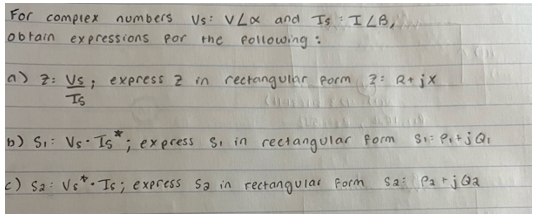 For complex numbers Vs: V∠α and Is: I∠β,
obtain expressions for the following:
a) Z: Vs/Is; express Z in rectangular form Z: R+jX
b) S1: Vs·Is*; express S1 in rectangular form S1: P1+jQ1
c) S2: Vs*·Is; express S2 in rectangular form S2: P2+jQ2